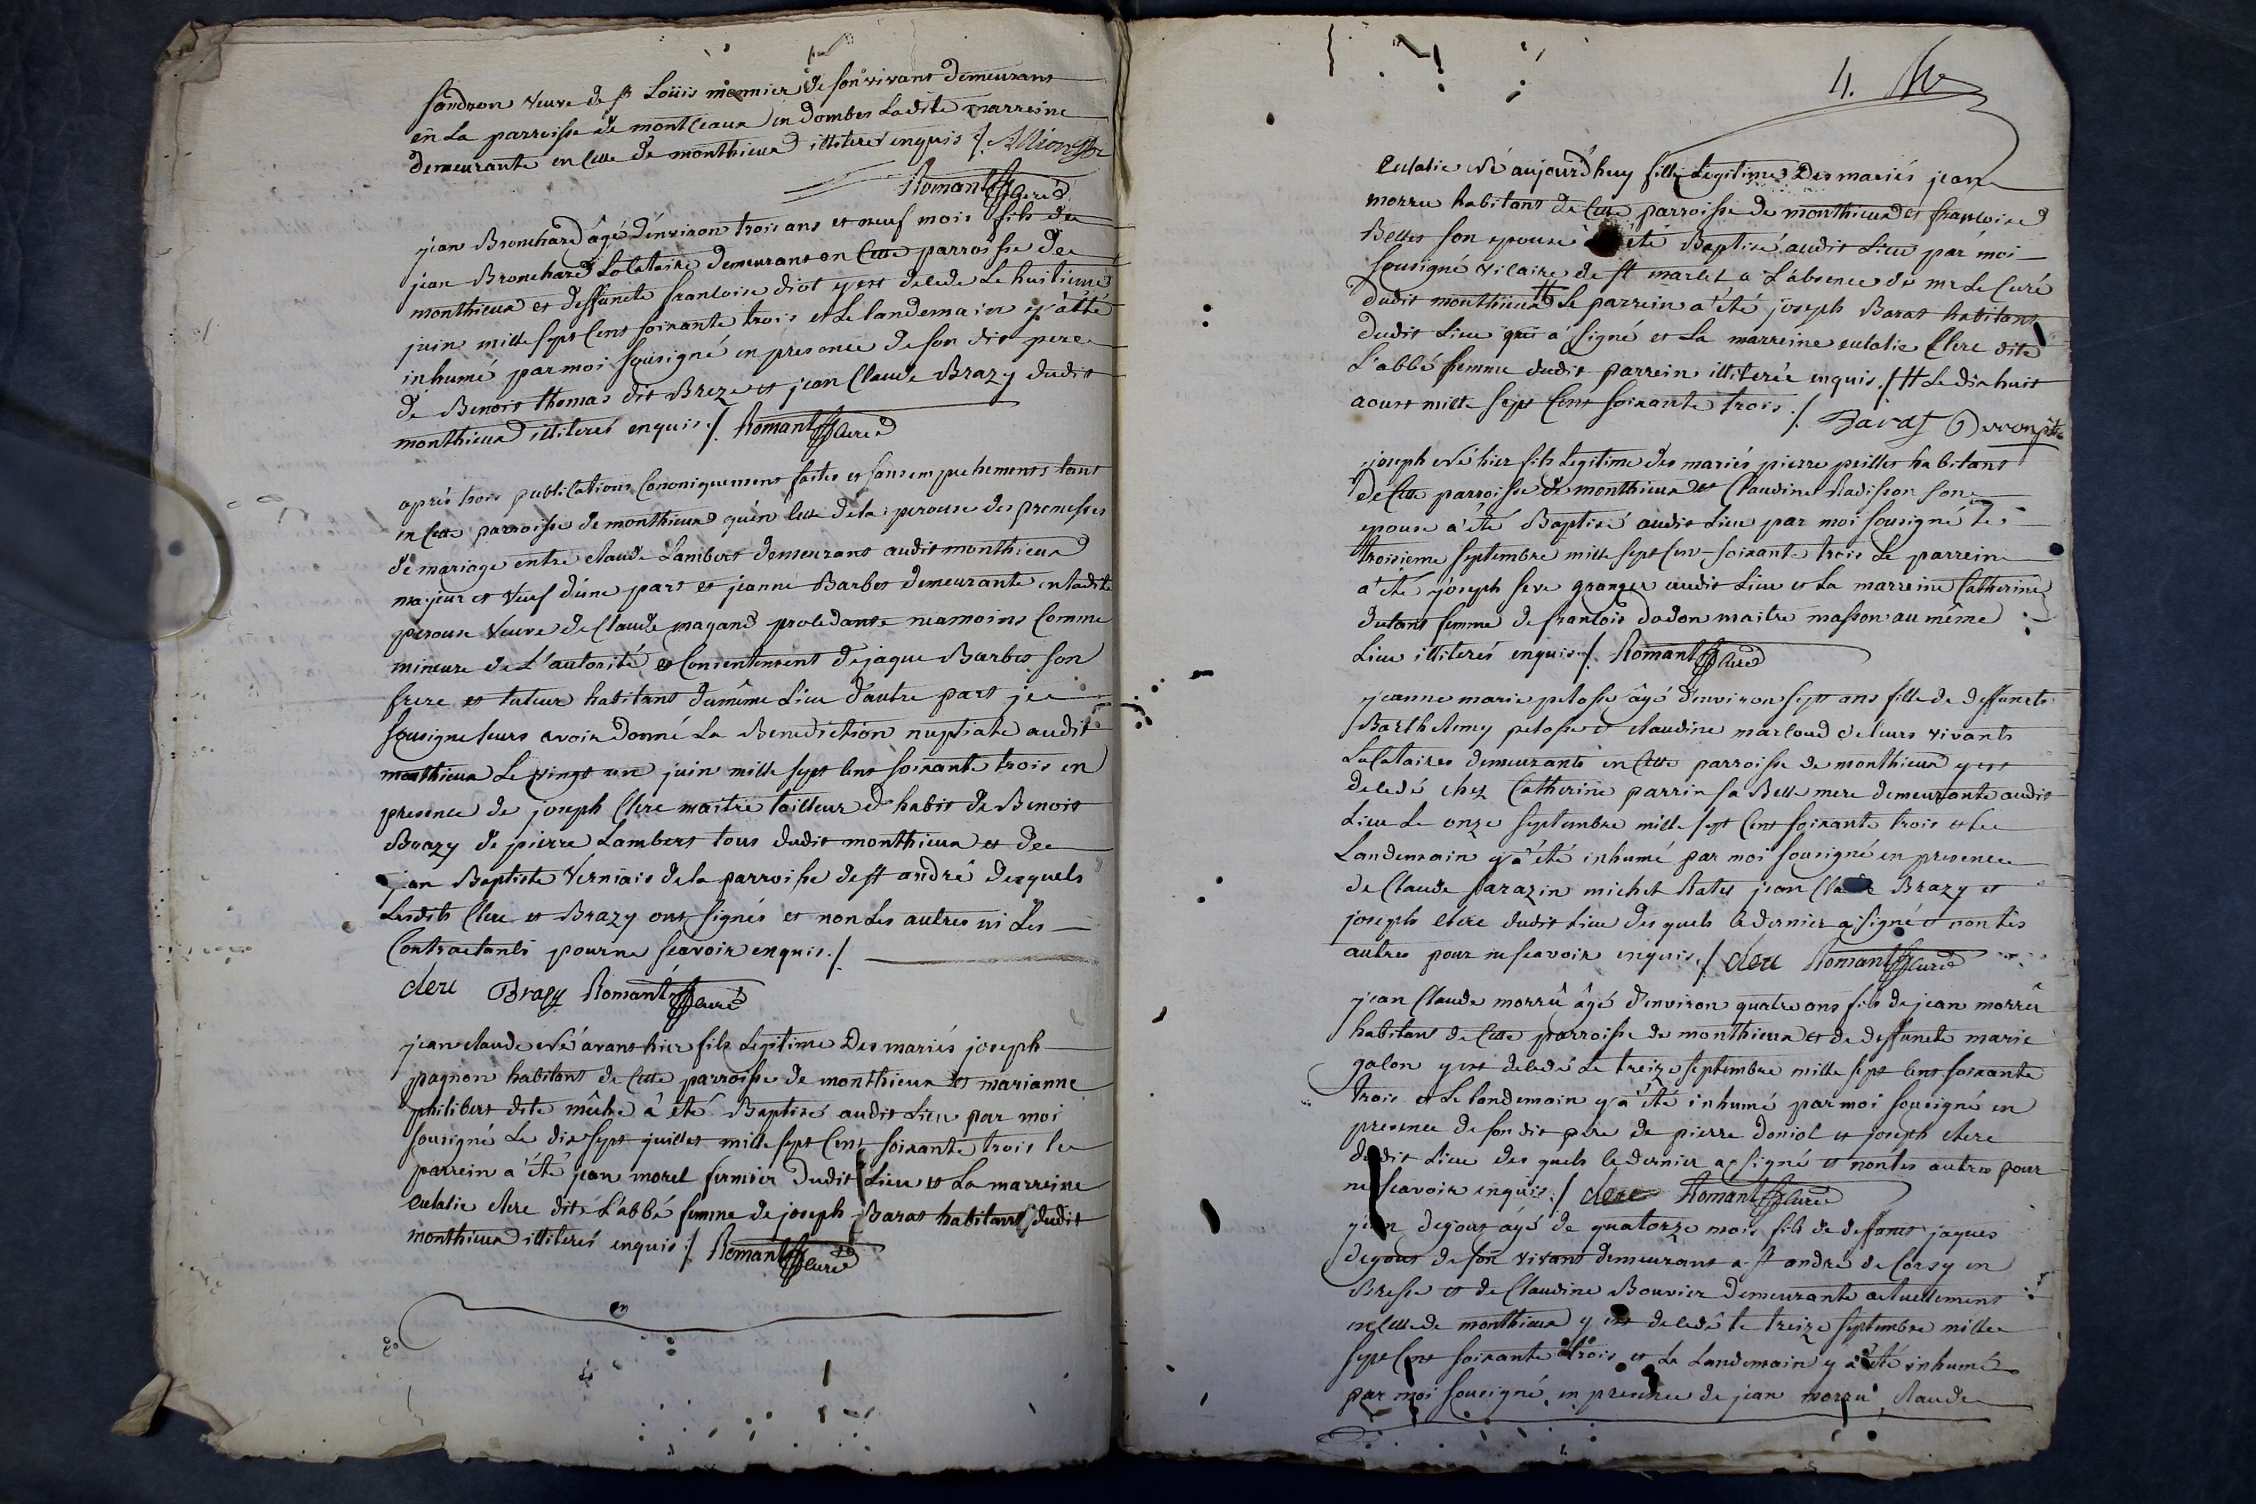 sandron veuve de sr Loüis monnier de son vivant demeurant
en La parroisse de montceaux en dombes Ladite marreine
demeurante en Cette de monthieux illiteré enquis ./.
Romant Curé
jean Bronchard âgé d'environ trois ans et neuf mois fils de
jean Bronchard Locataire demeurant en Cette parroisse de
monthieux et deffuncte francoise diot y est decedé Le huitieme
juin mille sept Cent soixante trois et Le landemain y a été
inhumé par moi sousigné en presence de son dit pere
de Benoit thomas dit Breze et jean Claude Brazy dudit
monthieux illiterés enquis ./. Romant Curé
aprés trois publications Canoniquement faites et sans empechements tant
en Cette parroisse de monthieux qu'en Cette de la perouse des promesses
de mariage entre claude Lambert demeurant audit monthieux
majeur et Veuf d'une part et jeanne Barbet demeurante en ladite
perouse Veuve de Claude magand procedante neamoins Comme
mineure de L'autorité et Consentement de jaque Barbet son
frere et tuteur habitant du même Lieu d'autre part je
sousigne leurs avoir donné La Benediction nuptiale audit
monthieux Le vingt un juin mille sept Cent soixante trois en
presence de joseph Clere maitre tailleur d'habit de Benoit
Brazy de pierre Lambert tous dudit monthieux et de
jean Baptiste Verniais de la parroisse de st andré desquels
Lesdits Clere et Brazy ont signés et non Les autres ni Les
Contractants pour ne scavoir enquis ./.
clere Brasy Romant Curé
jean claude né avant hier fils Legitime Des mariés joseph
pagnon habitant de Cette parroisse de monthieux et marianne
philibert dite mêche â été Baptisé audit Lieu par moi
sousigné Le dix sept juillet mille sept Cent soixante trois le
parrein a été jean morel fermier dudit Lieu et La marreine
eulalie clere dite L'abbé femme de joseph Baras habitant dudit
monthieux illiterés enquis ./. Romant Curé
4.
eulalie né aujourd'huy fille Legitime Des mariés jean
morru habitant de Cette parroisse de monthieux et francoise
Bellet son epouse a été Baptisé audit Lieu par moi
sousigné vicaire de st marcel a L'absence de mr Le Curé
dudit monthieux # Le parrein a été joseph Baras habitant
dudit Lieu qui a signé et La marreine eulalie Clere dite
L'abbé femme dudit parrein illiterée enquis ./. # Le dix huit
aoust mille sept Cent soixante trois ./. Baras
joseph né hier fils Legitime des mariés pierre peillet habitant
de Cette parroisse de monthieux et Claudine Radisson son
epouse a été Baptisé audit Lieu par moi sousigné le
troisieme septembre mille sept Cent soixante trois Le parrein
a été joseph seve granger audit Lieu et La marreine Catherine
dutant femme de francois dodon maitre masson au même
Lieu illiterés enquis ./. Romant Curé
jeanne marie pelosse âgé d'environ sept ans fille de deffuncts
Barthelemy pelosse et claudine marloud de leurs vivants
Locataires demeurants en Cette parroisse de monthieux y est
decedé chez Catherine parrin sa Belle mere demeurante audit
Lieu Le onze septembre mille sept Cent soixante trois et Le
Landemain y a été inhumé par moi sousigné en presence
de Claude sarazin michel Ratel jean Claude Brazy et
joseph clere dudit Lieu des quels le dernier a signé et non Les
autres pour ne scavoir enquis ./. clere Romant Curé
jean Claude morrû âgé d'environ quatre ans fils de jean morrû
habitant de Cette parroisse de monthieux et de deffuncte marie
galon y est decedé Le treize septembre mille sept Cent soixante
trois et Le landemain y a été inhumé par moi sousigné en
presence de son dit pere de pierre doniol et joseph clere
dudit Lieu des quels le dernier a signé et non les autres pour
ne scavoir enquis ./. clere Romant Curé
jean degout âgé de quatorze mois fils de deffunt jaques
degout de son vivant demeurant a st andré de Corsy en
Bresse et de Claudine Bouvier demeurante actuellement
en Cette de monthieux y est decedé le treize septembre mille
sept Cent soixante trois et Le Landemain y a été inhumé
par moi sousigné en presence de jean morru, Claude